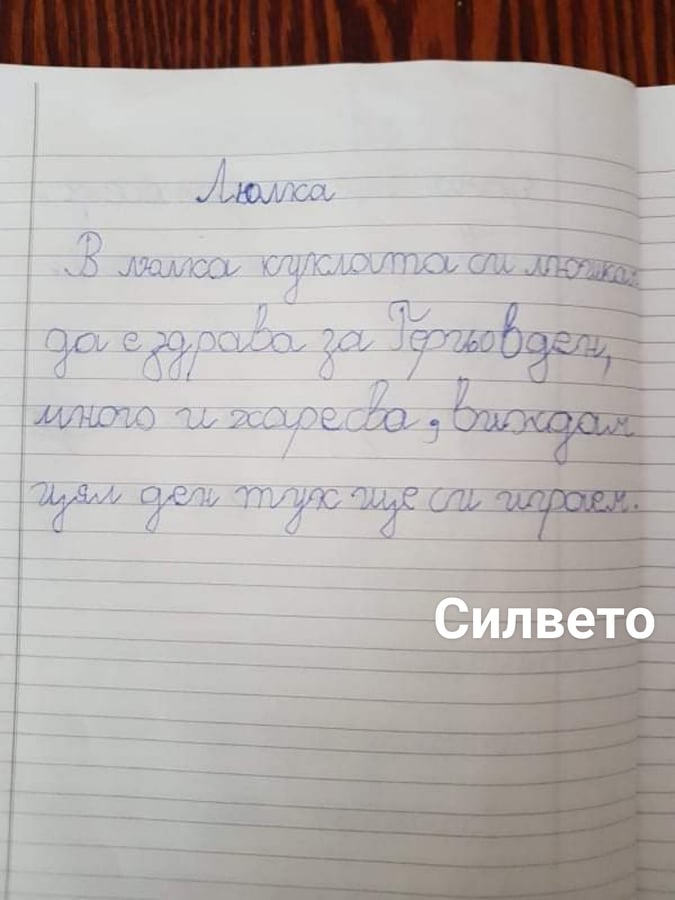 Люлка
В люлка куклата си люшкам
да е здрава за Гергьовден,
много и харесва, виждам
цял ден тук ще си играем.
Силвето